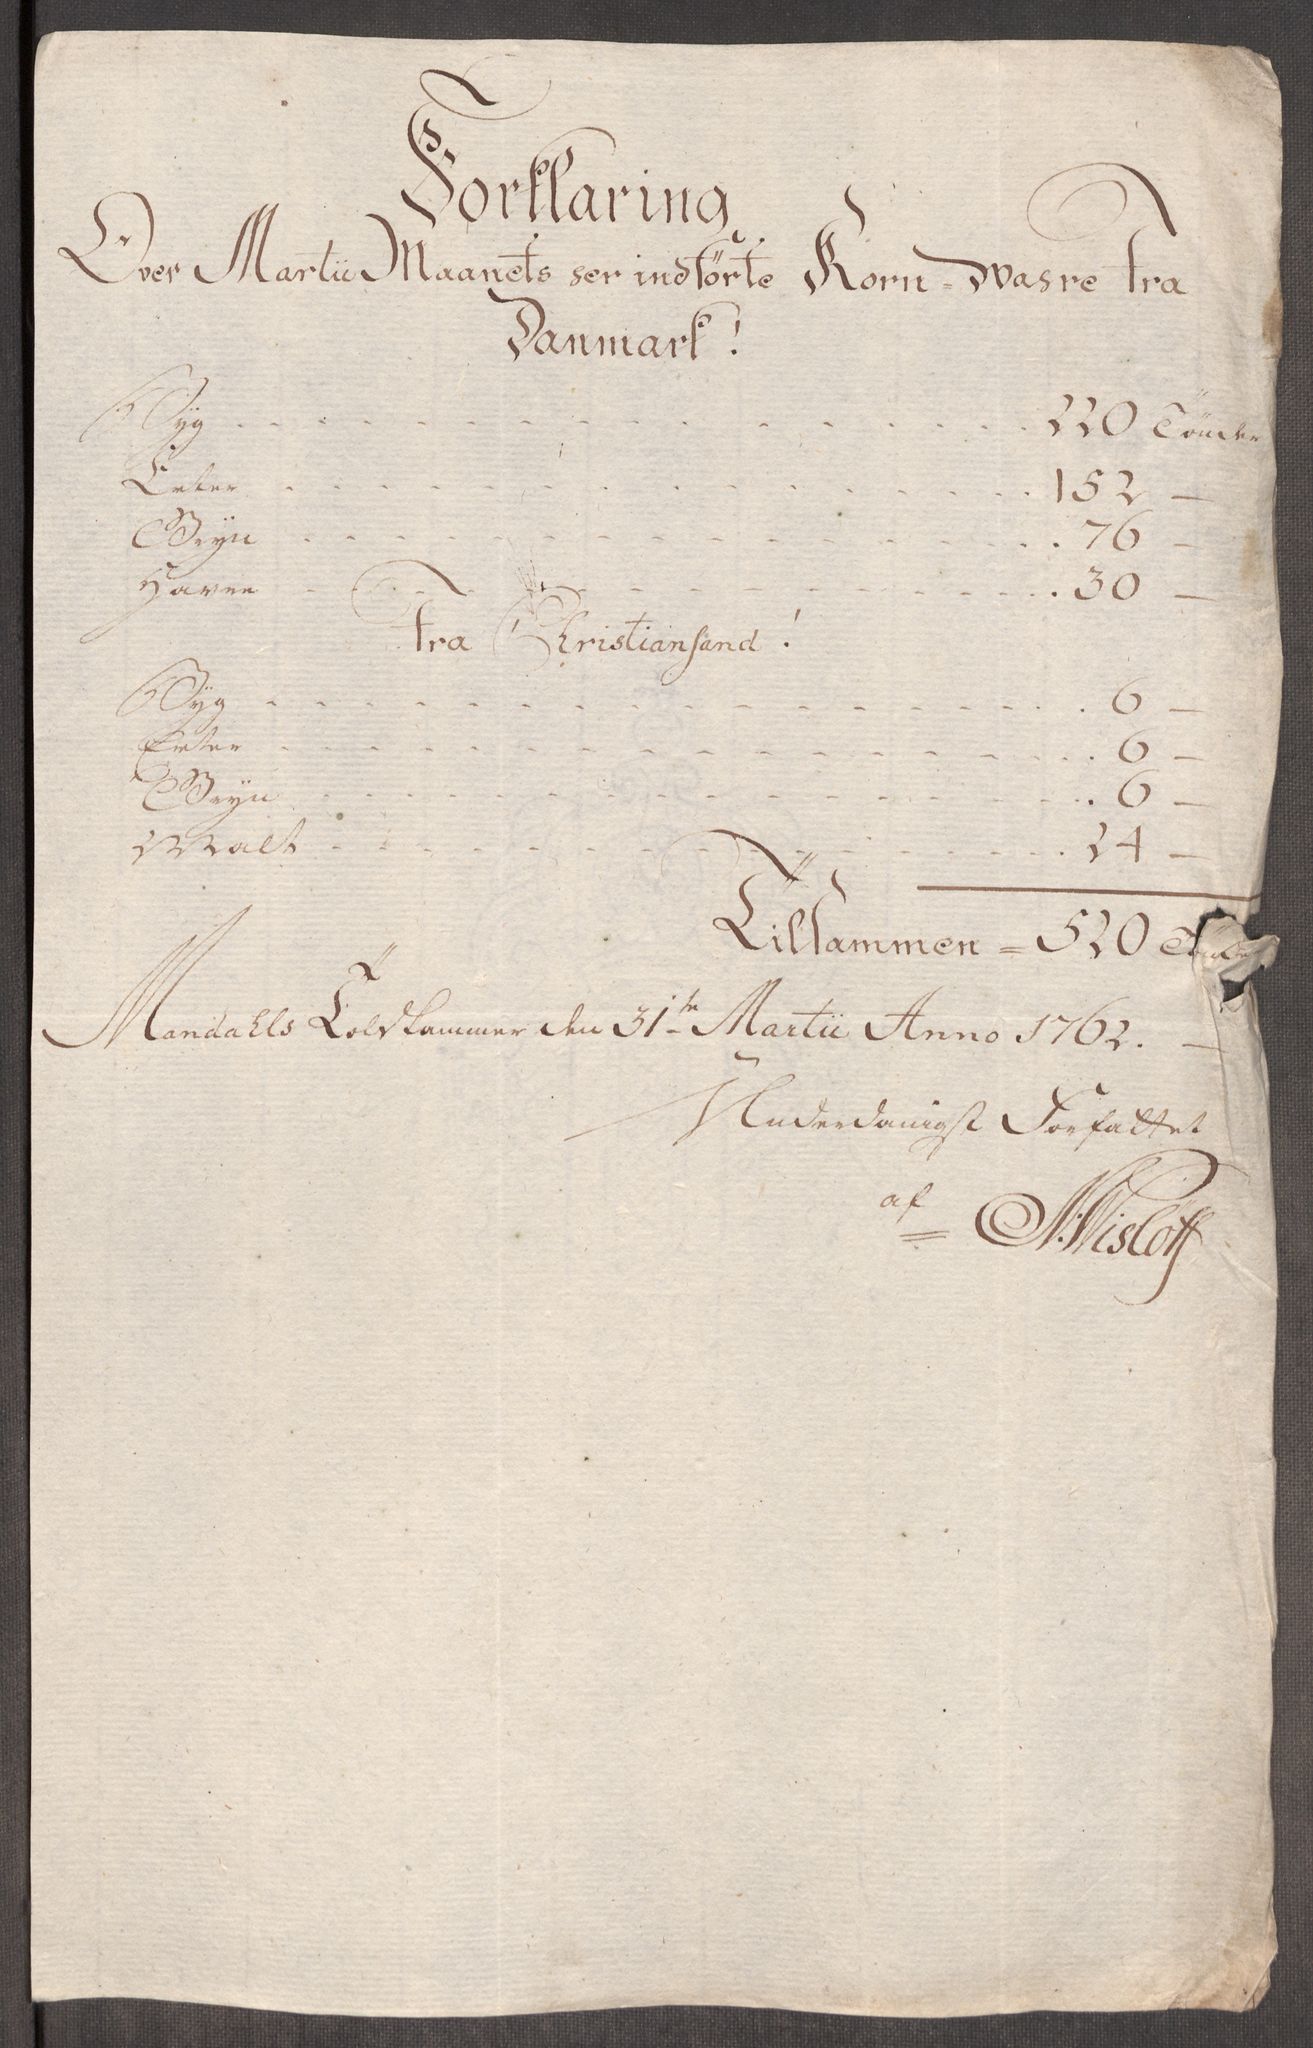 Forklaring
Over Martii Maanets her indførte Korn-Wahre fra
Danmark!
Byg 220 Tönder
Erter 152 —
Gryn 76 —
Havre 30 —
fra Christiansand!
Byg 6 —
Erter 6 —
Gryn 6 —
Malt 24 —
Tilsammen = 520 Tönder
Mandahls Toldkammer den 31te Martii Anno 1762. —
Underdanigst Forfattet
af N: Wislöff